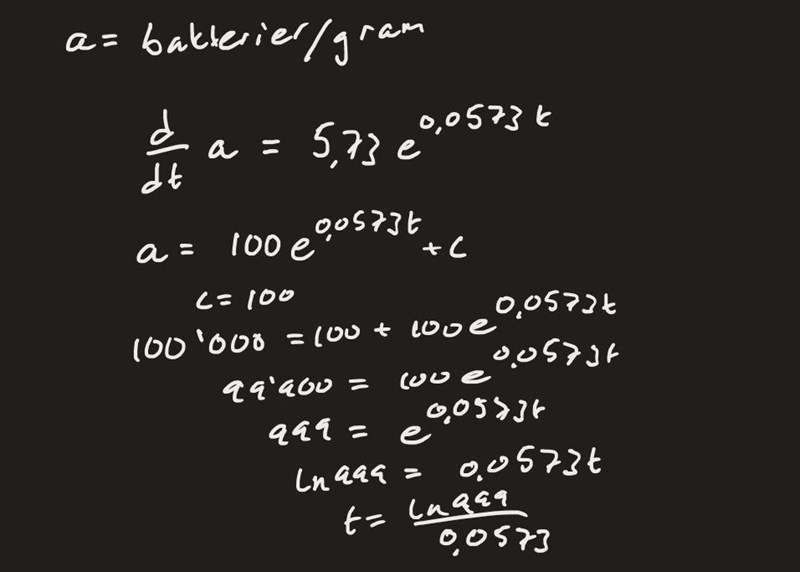 a = bakterier/gram
d/dt a = 5,73 e^0,0573t
a = 100 e^0,0573t + C
C = 100
100'000 = 100 + 100e^0,0573t
99'900 = 100 e^0,0573t
999 = e^0,0573t
ln 999 = 0,0573t
t = ln 999 / 0,0573